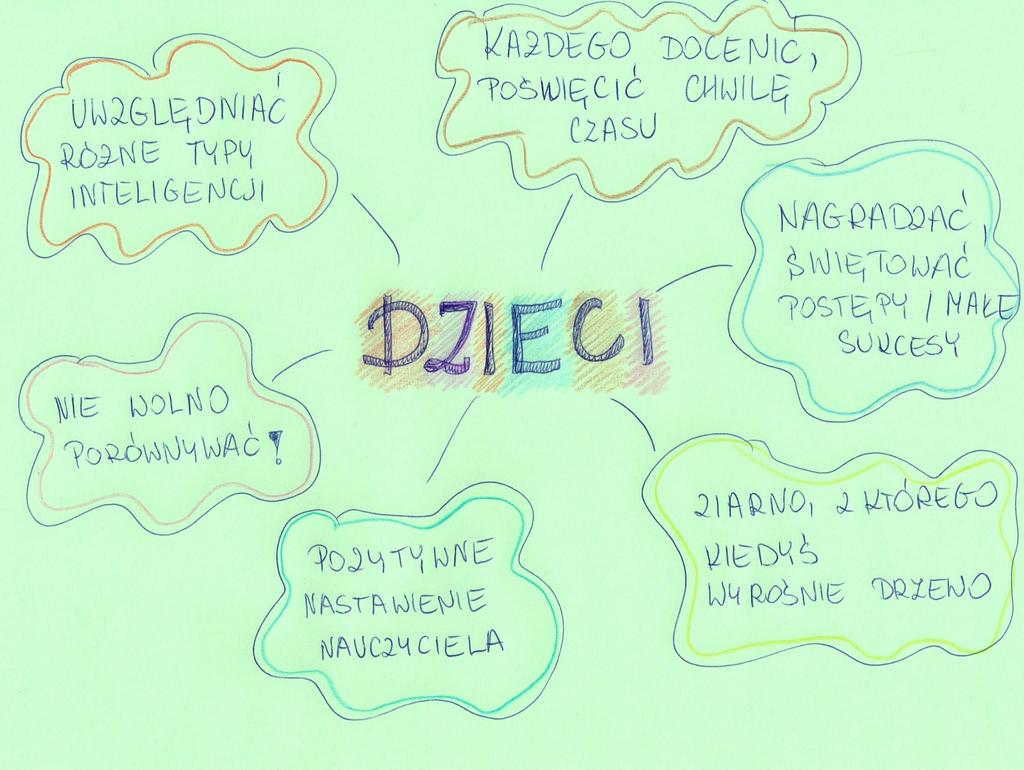 UWZGLĘDNIAĆ
RÓŻNE TYPY
INTELIGENCJI
KAŻDEGO DOCENIĆ,
POŚWIĘCIĆ CHWILĘ
CZASU
NAGRADZAĆ,
ŚWIĘTOWAĆ
POSTĘPY / MAŁE
SUKCESY
DZIECI
NIE WOLNO
PORÓWNYWAĆ!
POZYTYWNE
NASTAWIENIE
NAUCZYCIELA
ZIARNO, Z KTÓREGO
KIEDYŚ
WYROŚNIE DRZEWO